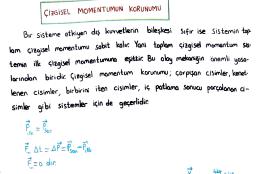 ÇİZGİSEL MOMENTUMUN KORUNUMU
Bir sisteme etkiyen dış kuvvetlerin bileşkesi sıfır ise sistemin top
lam çizgisel momentumu sabit kalır. Yani toplam çizgisel momentum sis
temin ilk çizgisel momentumuna eşittir. Bu olay mekaniğin önemli yasa
larından biridir. Çizgisel momentum korunumu; çarpışan cisimler, kenet
lenen cisimler, birbirini iten cisimler, iç patlama sonucu parçalanan ci
simler gibi sistemler için de geçerlidir.
P⃗ilk = P⃗son
F⃗. Δt = ΔP⃗ = P⃗son - P⃗ilk
F⃗ = 0 dır.